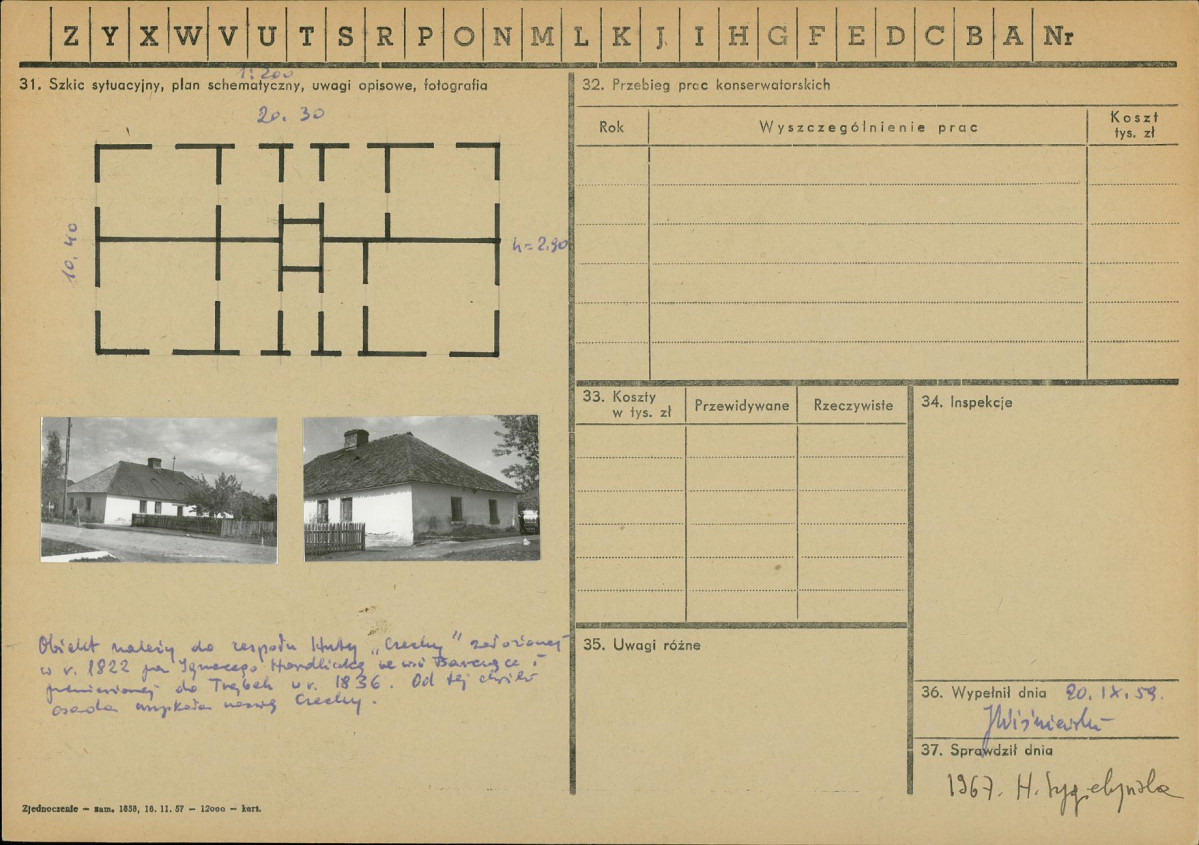 Z Y X W V U T S R P O N M L K J I H G F E D C B A Nr
1:200
31. Szkic sytuacyjny, plan schematyczny, uwagi opisowe, fotografia
20.30
10.40
h=2.90
Obiekt należy do zespołu Huty „Czechy" założonej
w r. 1822 pa Ignacego Hordliczkę we wsi i
przeniesionej do Trąbek w r. 1836. Od tej chwili
osada uzyskała nazwę Czechy.
Zjednoczenie — zam. 1858, 18. 11. 57 — 12000 — kart.
32. Przebieg prac konserwatorskich
Rok
Wyszczególnienie prac
Koszt
tys. zł
33. Koszty
w tys. zł
Przewidywane
Rzeczywiste
34. Inspekcje
35. Uwagi różne
36. Wypełnił dnia 20.IX.59.
JWiśniewski
37. Sprawdził dnia
1967. H.